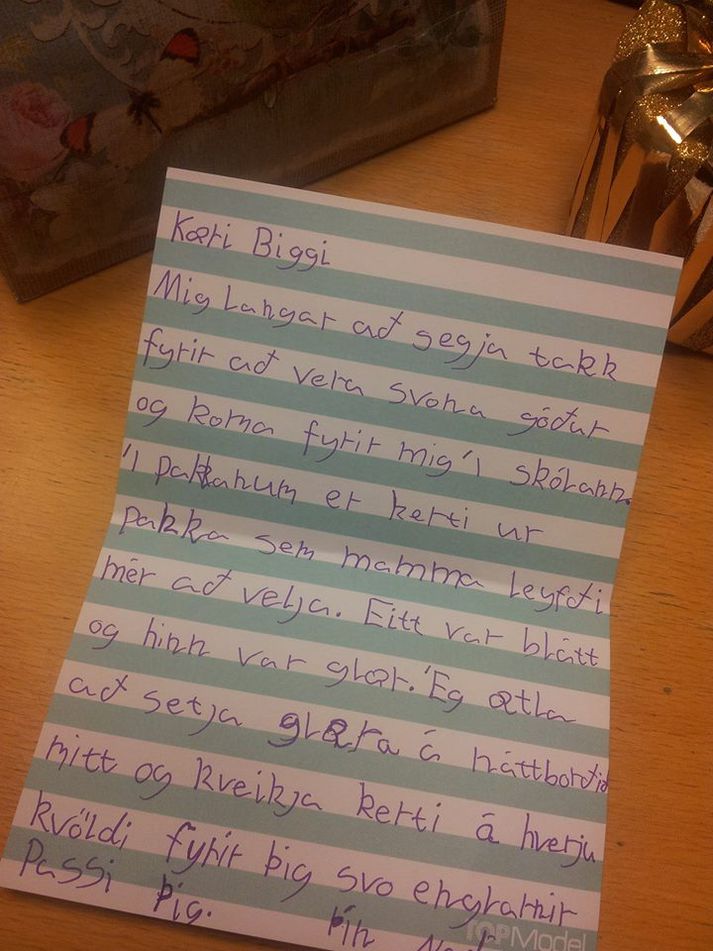 Kæri Biggi
Mig Langar að segja takk
fyrir að vera svona góður
og koma fyrir mig í skólann.
í pakkanum er kerti ur
pakka sem mamma Leyfði
mér að velja. Eitt var blátt
og hinn var glær. Ég ætla
að setja glæra á náttborðið
mitt og kveikja kerti á hverju
kvöldi fyrir þig svo englarnir
Passi þig.
þín
TOPModel